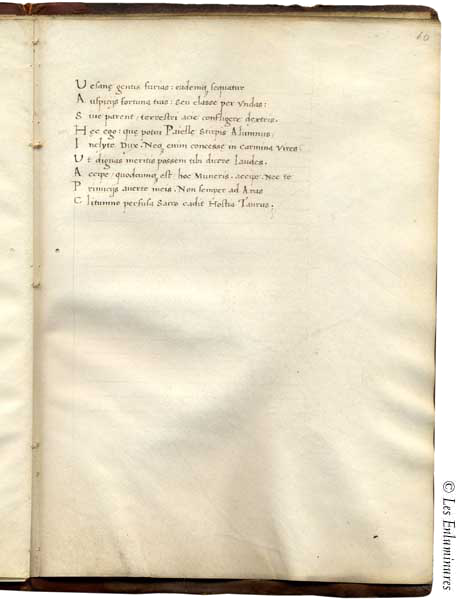 60
Uesane gentis furias: eademq sequatur
Auspicijs fortuna tuis: seu classe per undas:
Siue parent, terrestri acie confligere dextris.
Hec ego: que potui Paielle Stirpis Alumnus;
Inclyte Dux. Neq enim concesse in carmina Vires;
Ut dignas meritis possem tibi dicere laudes.
Accipe, quodcunq est hoc Muneris. accipe. Nec te
Principijs auerte meis. Non semper ad Aras
Clitumno perfusa Sacro cadit Hostia Taurus.
© Les Enluminures